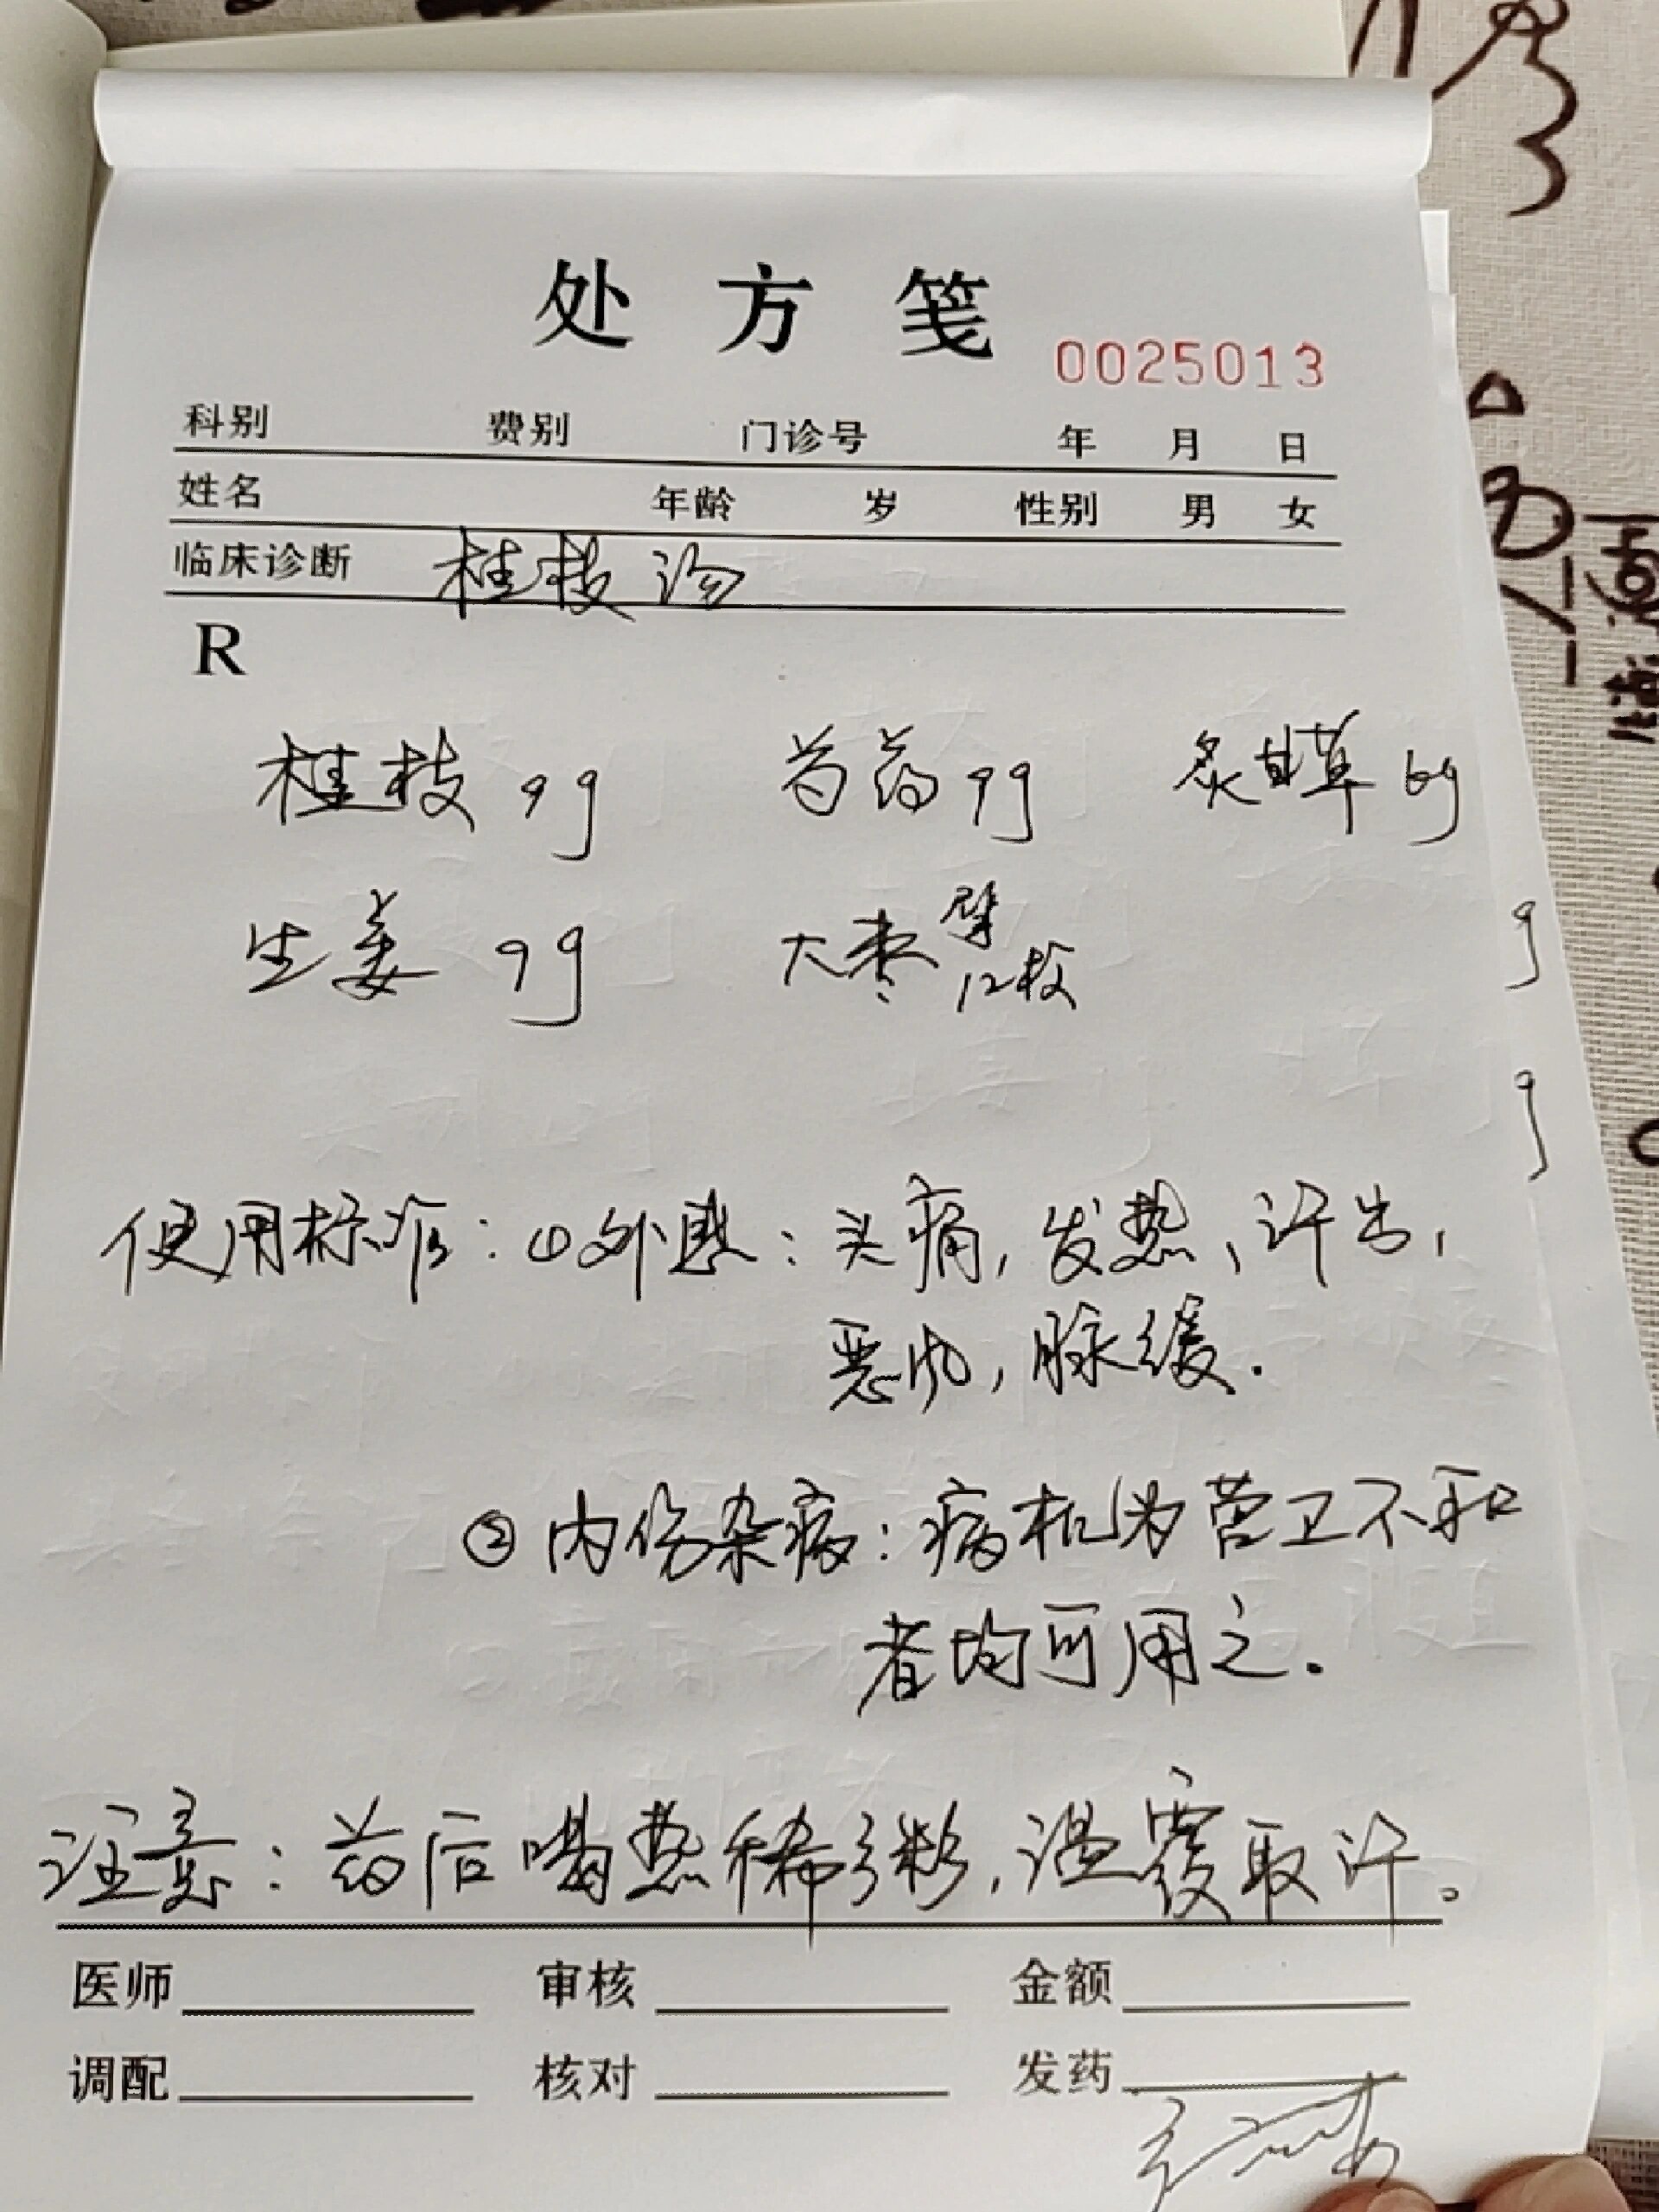 处方笺
0025013
科别 费别 门诊号 年 月 日
姓名 年龄 岁 性别 男 女
临床诊断 桂枝汤
R
桂枝 9g 芍药 9g 炙甘草 6g
生姜 9g 大枣 擘 12枚 g
g
使用标准：①外感：头痛，发热、汗出，
恶风，脉缓.
②内伤杂病：病机为营卫不和
者均可用之.
注意：药后喝热稀粥，温覆取汗。
医师 审核 金额
调配 核对 发药